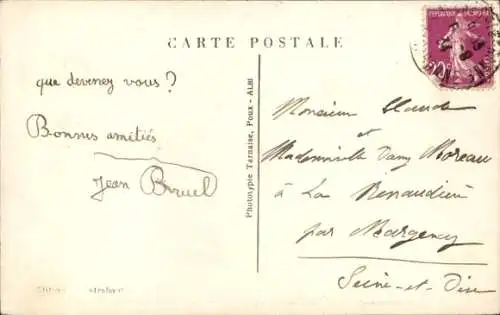 CARTE POSTALE
que devenez vous?
Bonnes amitiés
Jean Bruel
Phototypie Tarnaise, Poux - ALBI
Monsieur Claude
et
Mademoiselle Dany Moreau
à La Renaudière
par Margency
Seine-et-Oise